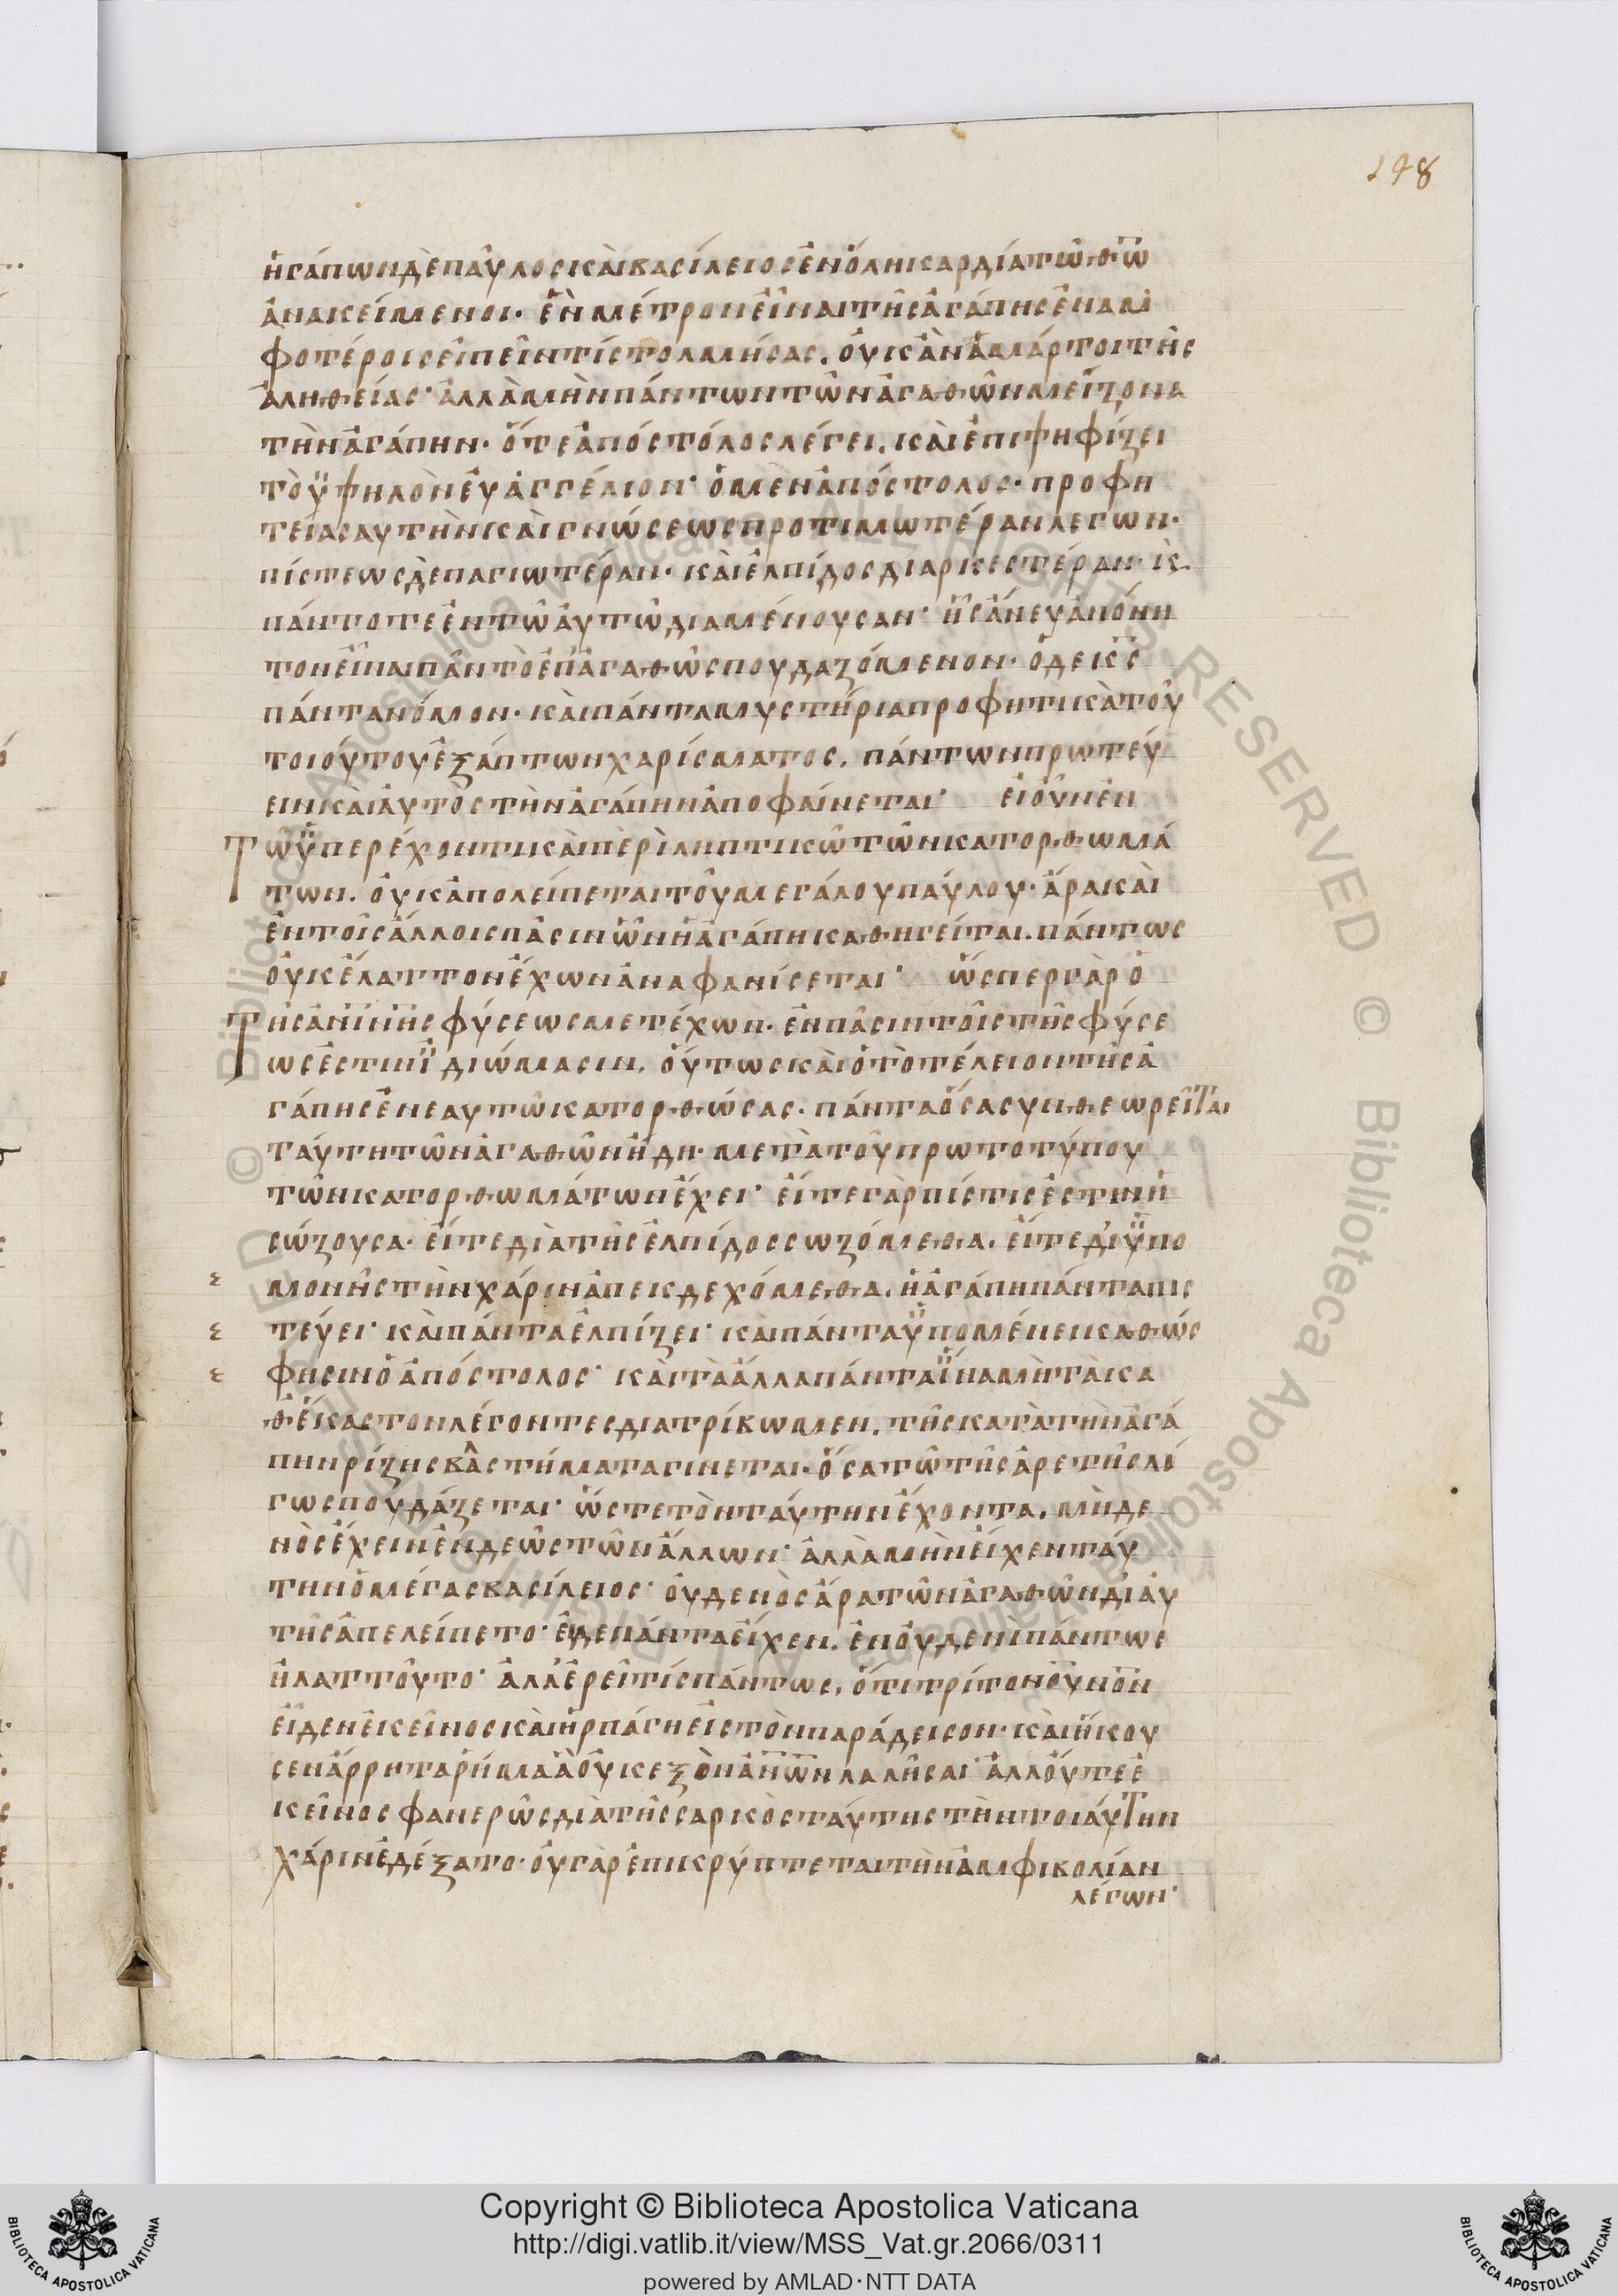 198
ἠγάπων δὲ παῦλος καὶ βασίλειος ἐν ὅλη καρδία τῶ θ̅ω̅
ἀνακείμενοι· ἓν μέτρον εἶναι τῆς ἀγάπης ἐν ἀμ
φοτέροις εἰπεῖν τίς τολμήσας, οὐκ ἂν ἁμάρτοι τῆς
ἀληθείας· ἀλλὰ μὴν πάντων τῶν ἀγαθῶν μείζονα
τὴν ἀγάπην· ὅτε ἀπόστολος λέγει, καὶ ἐπιψηφίζει
τὸ ὑψηλὸν εὐαγγέλιον· ὁ μὲν ἀπόστολος· προφη
τείας αυτὴν καὶ γνώσεως προτιμωτέραν λεγων·
πίστεως δὲ παγιωτέραν· καὶ ἐλπίδος διαρκεστέραν· κ̀
πάντοτε ἐν τῶ αὐτῶ διαμένουσαν· ἧς ἄνευ ἀπόνη
τον εἶναι πᾶν τὸ ἐπ ἀγαθῶ σπουδαζόμενον· ὁ δε κ̅ς̅
πάντα νόμον· καὶ πάντα μυστήρια προφητικὰ τοῦ
τοιούτου ἐξάπτων χαρίσματος, πάντων πρωτεύ
ειν καὶ αὐτὸς τὴν ἀγάπην ἀποφαίνεται· εἰ οὖν ἐν
τῶ ὑπερέχοντι καὶ περὶληπτικῶ τῶν κατορθωμά
των. οὐκ ἀπολείπεται τοῦ μεγάλου παύλου· ἄρα καὶ
ἐν τοῖς ἄλλοις πᾶσιν ὧν ἡ ἀγάπη καθηγεῖται. πάντως
οὐκ ἔλαττον ἔχων ἀναφανίσεται· ὥσπερ γὰρ ὁ
τῆς ἀ̅ν̅ί̅ν̅ης φύσεως μετέχων· ἐν πᾶσιν τοῖς τῆς φύσε
ως ἐστιν ἰδιώμασιν, οὕτως καὶ ὁ τὸ τέλειον τῆς ἀ
γάπης ἐν εαυτῶ κατορθώσας· πάντα ὅσα συνθεωρεῖται
ταύτη τῶν ἀγαθῶν ἤδη· μετὰ τοῦ πρωτοτύπου
τῶν κατορθωμάτων ἔχει· εἴτε γὰρ πίστις ἐστιν ἡ
σώζουσα· εἴτε διὰ τῆς ἐλπίδος σωζόμεθα, εἴτε δι ὑπο
μονῆς τὴν χάριν ἀπεκδεχόμεθα, ἡ ἀγάπη πάντα πισ
τεύει· καὶ πάντα ἐλπίζει· καὶ πάντα ὑπομένει καθώς
φησιν ὁ ἀπόστολος· καὶ τὰ ἄλλα πάντα ἵνα μὴ τὰ κα
θ ἕκαστον λέγοντες διατρίβωμεν. τῆς κατὰ τὴν ἀγά
πην ρίζης βλαστήματα γίνεται· ὅσα τῶ τῆς ἀρετῆς λό
γω σπουδάζεται· ὥστε τὸν ταύτην ἔχοντα, μὴδε
νὸς ἔχειν ἐνδεῶς τῶν ἄλλων· ἀλλὰ μὴν εἶχεν ταύ
την ὁ μέγας βασίλειος· οὐδενὸς ἄρα τῶν ἀγαθῶν δι αὐ
τῆς ἀπελείπετο· εἰ δε πάντα εἶχεν. ἐν οὐδενὶ πάντως
ἠλαττοῦτο· ἀλλ ἐρεῖ τίς πάντως, ὅτι τρίτον ο̅υ̅ν̅ο̅ν̅
εἶδεν ἐκεῖνος καὶ ἡρπάγη εἰς τὸν παράδεισον· καὶ ἤκου
σεν ἄρρητα ρήμα ἃ οὐκ εξὸν ἀ̅ν̅ω̅ λαλῆσαι· ἀλλ οὔτε ἐ
κεῖνος φανερῶς διὰ τῆς σαρκὸς ταύτης τὴν τοιαύτην
χάριν ἐδέξατο· οὐ γὰρ ἐπικρύπτεται τὴν ἀμφιβολίαν
λέγων·
Copyright © Biblioteca Apostolica Vaticana
http://digi.vatlib.it/view/MSS_Vat.gr.2066/0311
powered by AMLAD·NTT DATA